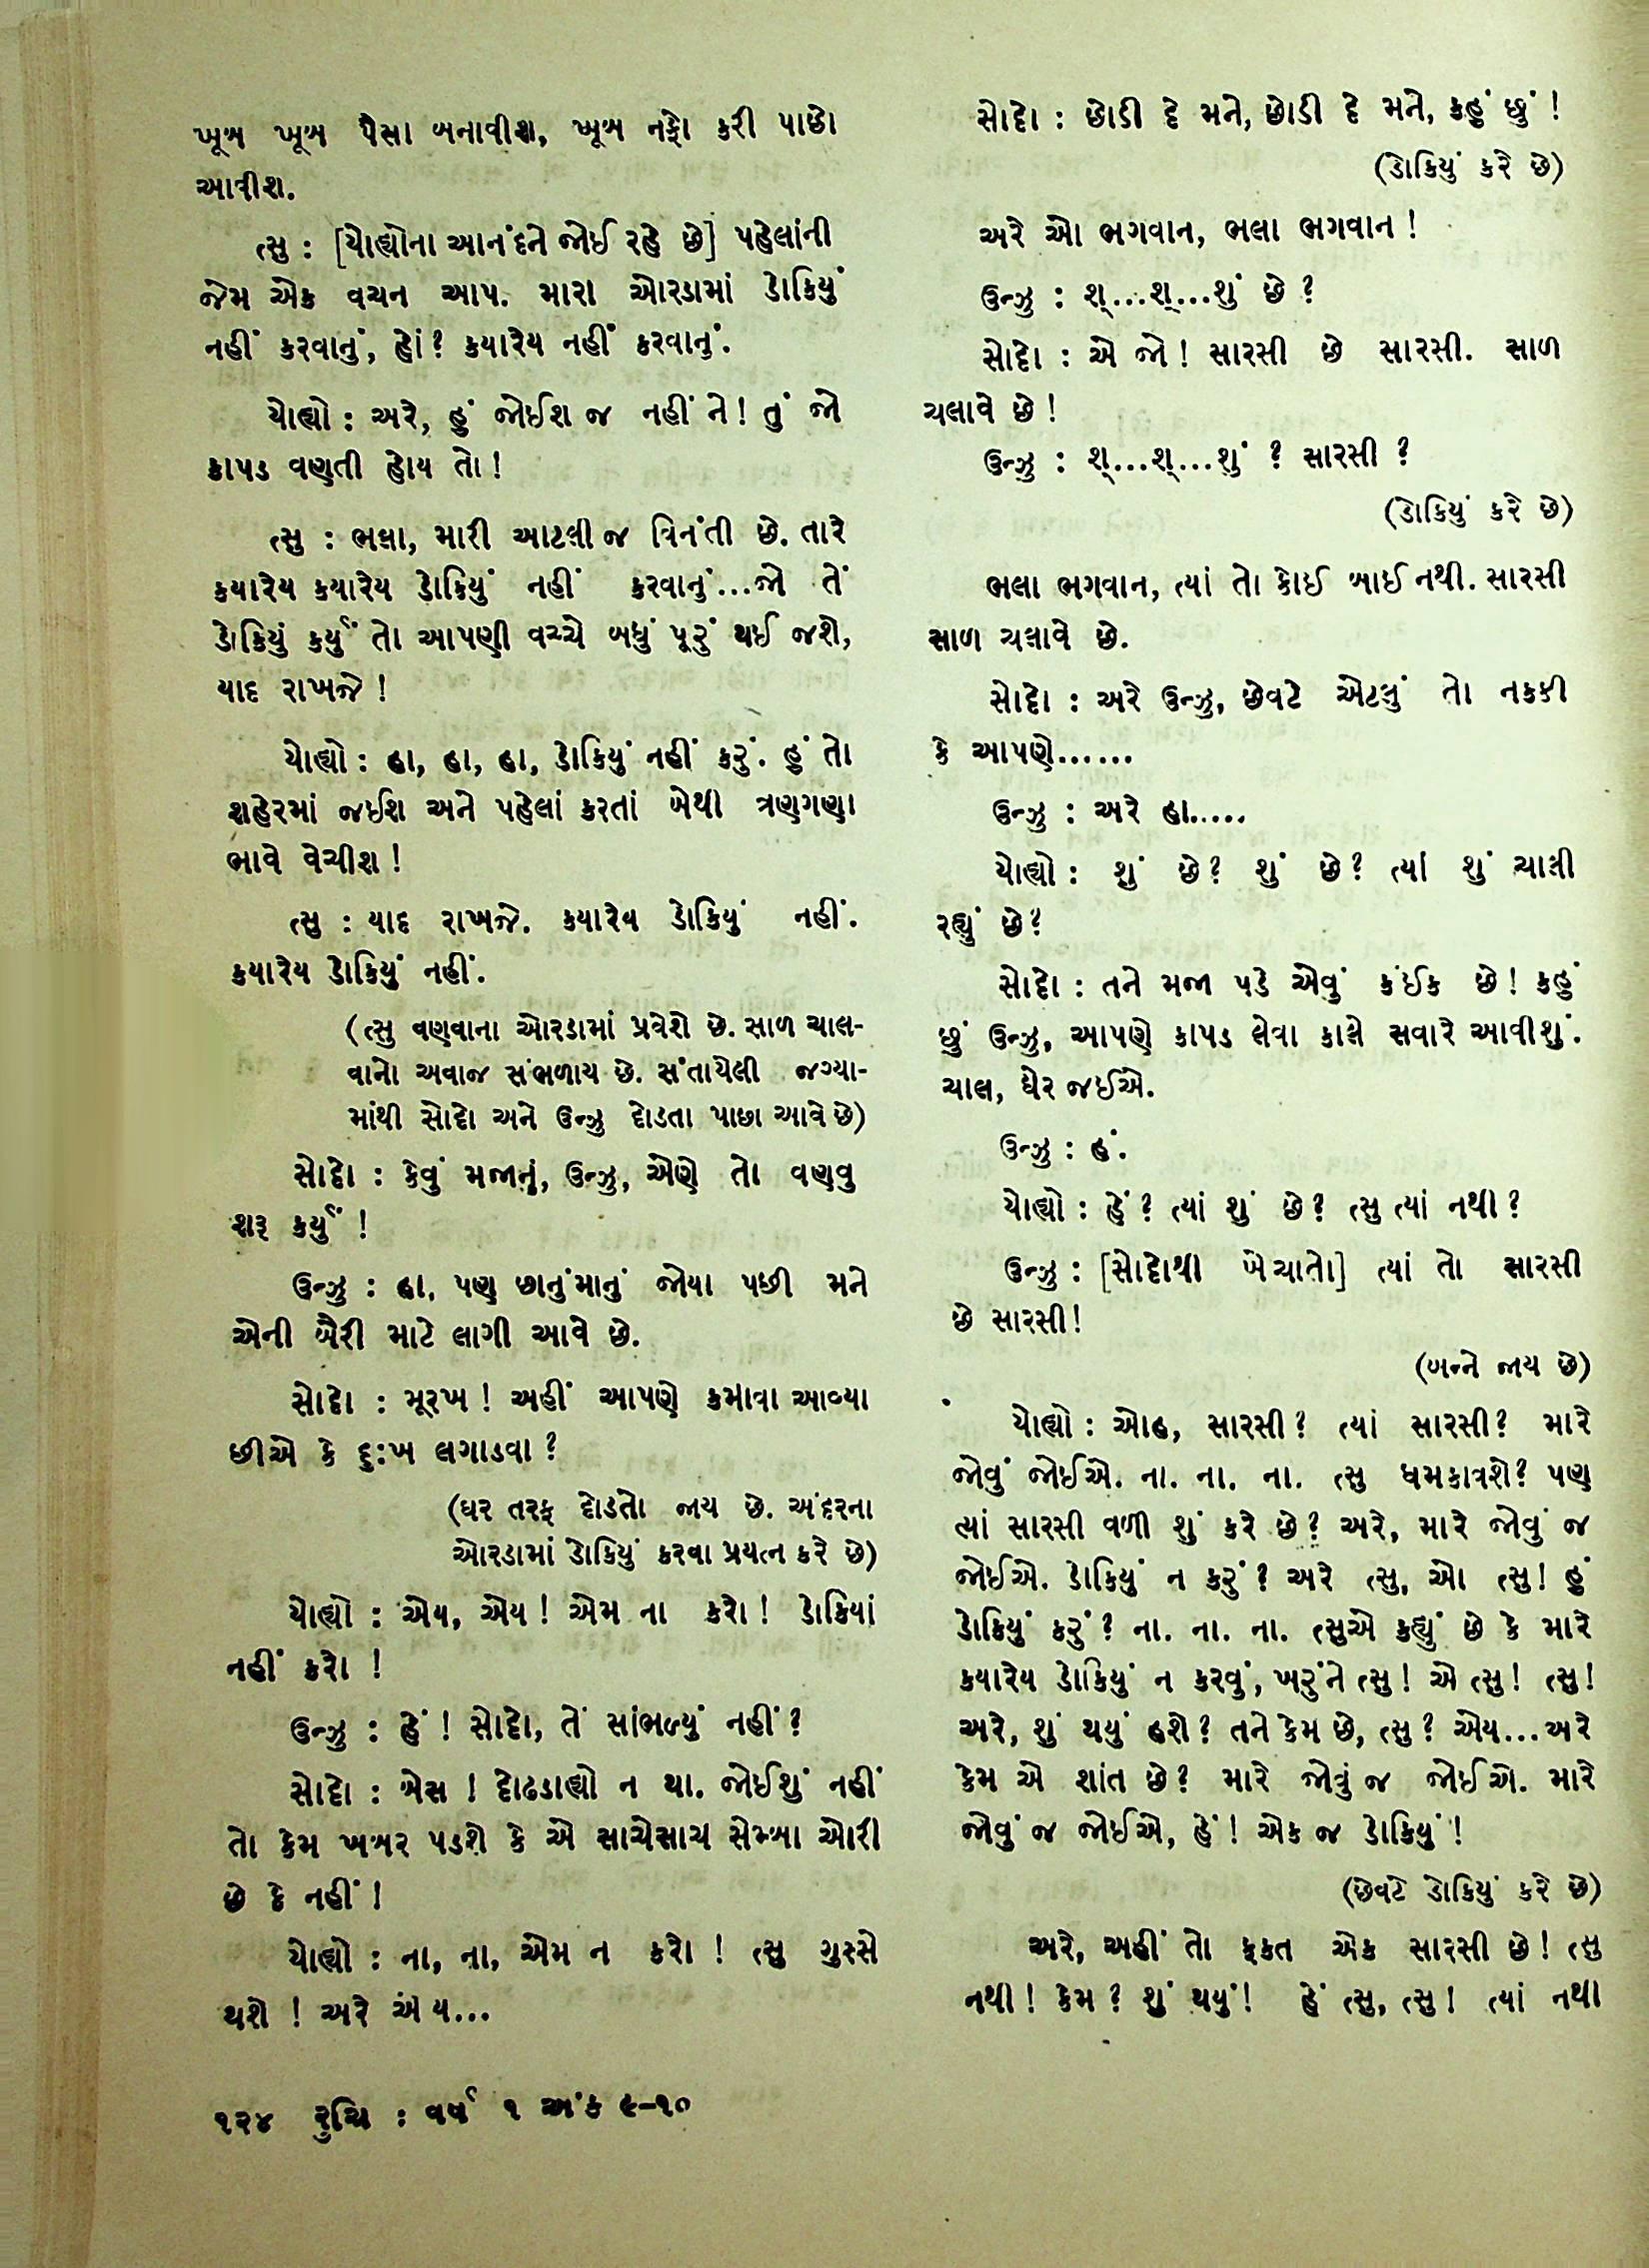 ખૂબ ખૂબ પૈસા બનાવીશ, ખૂબ નફો કરી પાછો
આવીશ.
ત્સુ : [યોહ્યોના આનંદને જોઈ રહે છે] પહેલાંની
જેમ એક વચન આપ. મારા ઓરડામાં ડોકિયું
નહીં કરવાનું, હોં? કયારેય નહીં કરવાનું.
યોહ્યો : અરે, હું જોઈશ જ નહીં ને! તું જો
કાપડ વણતી હોય તો!
ત્સુ : ભલા, મારી આટલી જ વિનંતી છે. તારે
કયારેય કયારેય ડોકિયું નહીં કરવાનું...જો તેં
ડોકિયું કર્યું તો આપણી વચ્ચે બધું પૂરું થઈ જશે,
યાદ રાખજે!
યોહ્યો : હા, હા, હા, ડોકિયું નહીં કરું. હું તો
શહેરમાં જઈશ અને પહેલાં કરતાં બેથી ત્રણગણા
ભાવે વેચીશ!
ત્સુ : યાદ રાખજે. કયારેય ડોકિયું નહીં.
કયારેય ડોકિયું નહીં.
(ત્સુ વણવાના ઓરડામાં પ્રવેશે છે. સાળ ચાલ-
વાનો અવાજ સંભળાય છે. સંતાયેલી જગ્યા-
માંથી સોદો અને ઉન્ઝુ દોડતા પાછા આવે છે)
સોદો : કેવું મજાનું, ઉન્ઝુ, એણે તો વણવુ
શરૂ કર્યું!
ઉન્ઝુ : હા, પણ છાનુંમાનું જોયા પછી મને
એની બૈરી માટે લાગી આવે છે.
સોદો : મૂરખ! અહીં આપણે કમાવા આવ્યા
છીએ કે દુ:ખ લગાડવા?
(ઘર તરફ દોડતો જાય છે. અંદરના
ઓરડામાં ડોકિયું કરવા પ્રયત્ન કરે છે)
યોહ્યો : એય, એય! એમ ના કરો! ડોકિયાં
નહીં કરો!
ઉન્ઝુ : હેં! સોદો, તેં સાંભળ્યું નહીં?
સોદો : બેસ! દોઢડાહ્યો ન થા. જોઈશું નહીં
તો કેમ ખબર પડશે કે એ સાચેસાચ સેમ્બા ઓરી
છે કે નહીં!
યોહ્યો : ના, ના, એમ ન કરો! ત્સુ ગુસ્સે
થશે! અરે એય...
૧૨૪ રુચિ : વર્ષ ૧ અંક ૯-૧૦
સોદો : છોડી દે મને, છોડી દે મને, કહું છું!
(ડોકિયું કરે છે)
અરે ઓ ભગવાન, ભલા ભગવાન!
ઉન્ઝુ : શ્...શ્...શું છે?
સોદો : એ જો! સારસી છે સારસી. સાળ
ચલાવે છે!
ઉન્ઝુ : શ્...શ્...શું ? સારસી?
(ડોકિયું કરે છે)
ભલા ભગવાન, ત્યાં તો કોઈ બાઈ નથી. સારસી
સાળ ચલાવે છે.
સોદો : અરે ઉન્ઝુ, છેવટે એટલું તો નકકી
કે આપણે......
ઉન્ઝુ : અરે હા.....
યોહ્યો : શું છે? શું છે? ત્યાં શું ચાલી
રહ્યું છે?
સોદો : તને મજા પડે એવું કંઈક છે! કહું
છું ઉન્ઝુ, આપણે કાપડ લેવા કાલે સવારે આવીશું.
ચાલ, ઘેર જઈએ.
ઉન્ઝુ : હં.
યોહ્યો : હેં? ત્યાં શું છે? ત્સુ ત્યાં નથી?
ઉન્ઝુ : [સોદોથી ખેંચાતો] ત્યાં તો સારસી
છે સારસી!
(બન્ને જાય છે)
યોહ્યો : ઓહ, સારસી? ત્યાં સારસી? મારે
જોવું જોઈએ. ના. ના. ના. ત્સુ ધમકાવશે? પણ
ત્યાં સારસી વળી શું કરે છે? અરે, મારે જોવું જ
જોઈએ. ડોકિયું ન કરું? અરે ત્સુ, ઓ ત્સુ! હું
ડોકિયું કરું? ના. ના. ના. ત્સુએ કહ્યું છે કે મારે
કયારેય ડોકિયું ન કરવું, ખરુંને ત્સુ! એ ત્સુ! ત્સુ!
અરે, શું થયું હશે? તને કેમ છે, ત્સુ? એય...અરે
કેમ એ શાંત છે? મારે જોવું જ જોઈએ. મારે
જોવું જ જોઈએ, હેં! એક જ ડોકિયું!
(છેવટે ડોકિયું કરે છે)
અરે, અહીં તો ફકત એક સારસી છે! ત્સુ
નથી! કેમ? શું થયું! હેં ત્સુ, ત્સુ! ત્યાં નથી